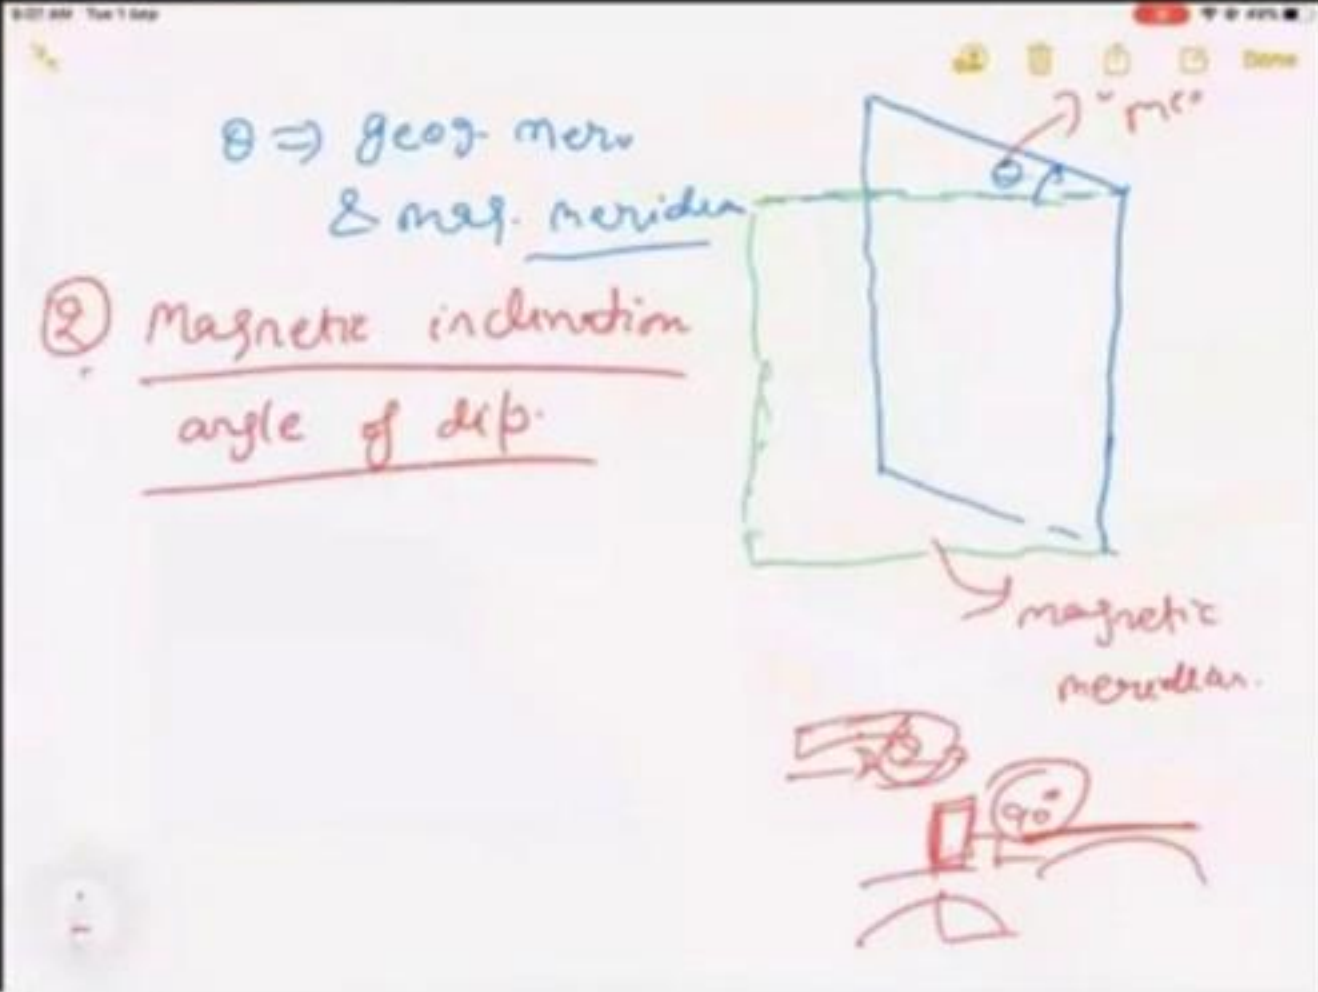 Tue 1 Sep
Done
θ ⇒ geog. mer.
"me"
θ
& mag. meridian
② Magnetic inclination
angle of dip.
magnetic
meridian.
90°